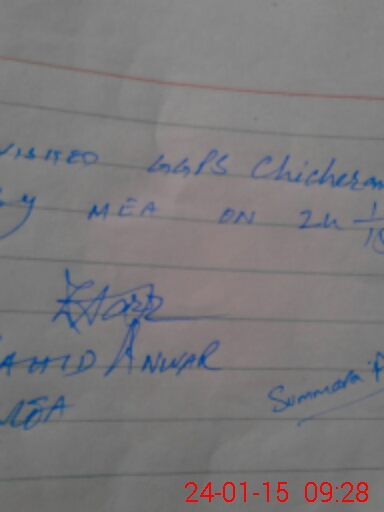 VISITED GGPS Chicheran
by MEA ON 24 1/15
AHID ANWAR
MEA
Summera
24-01-15 09:28